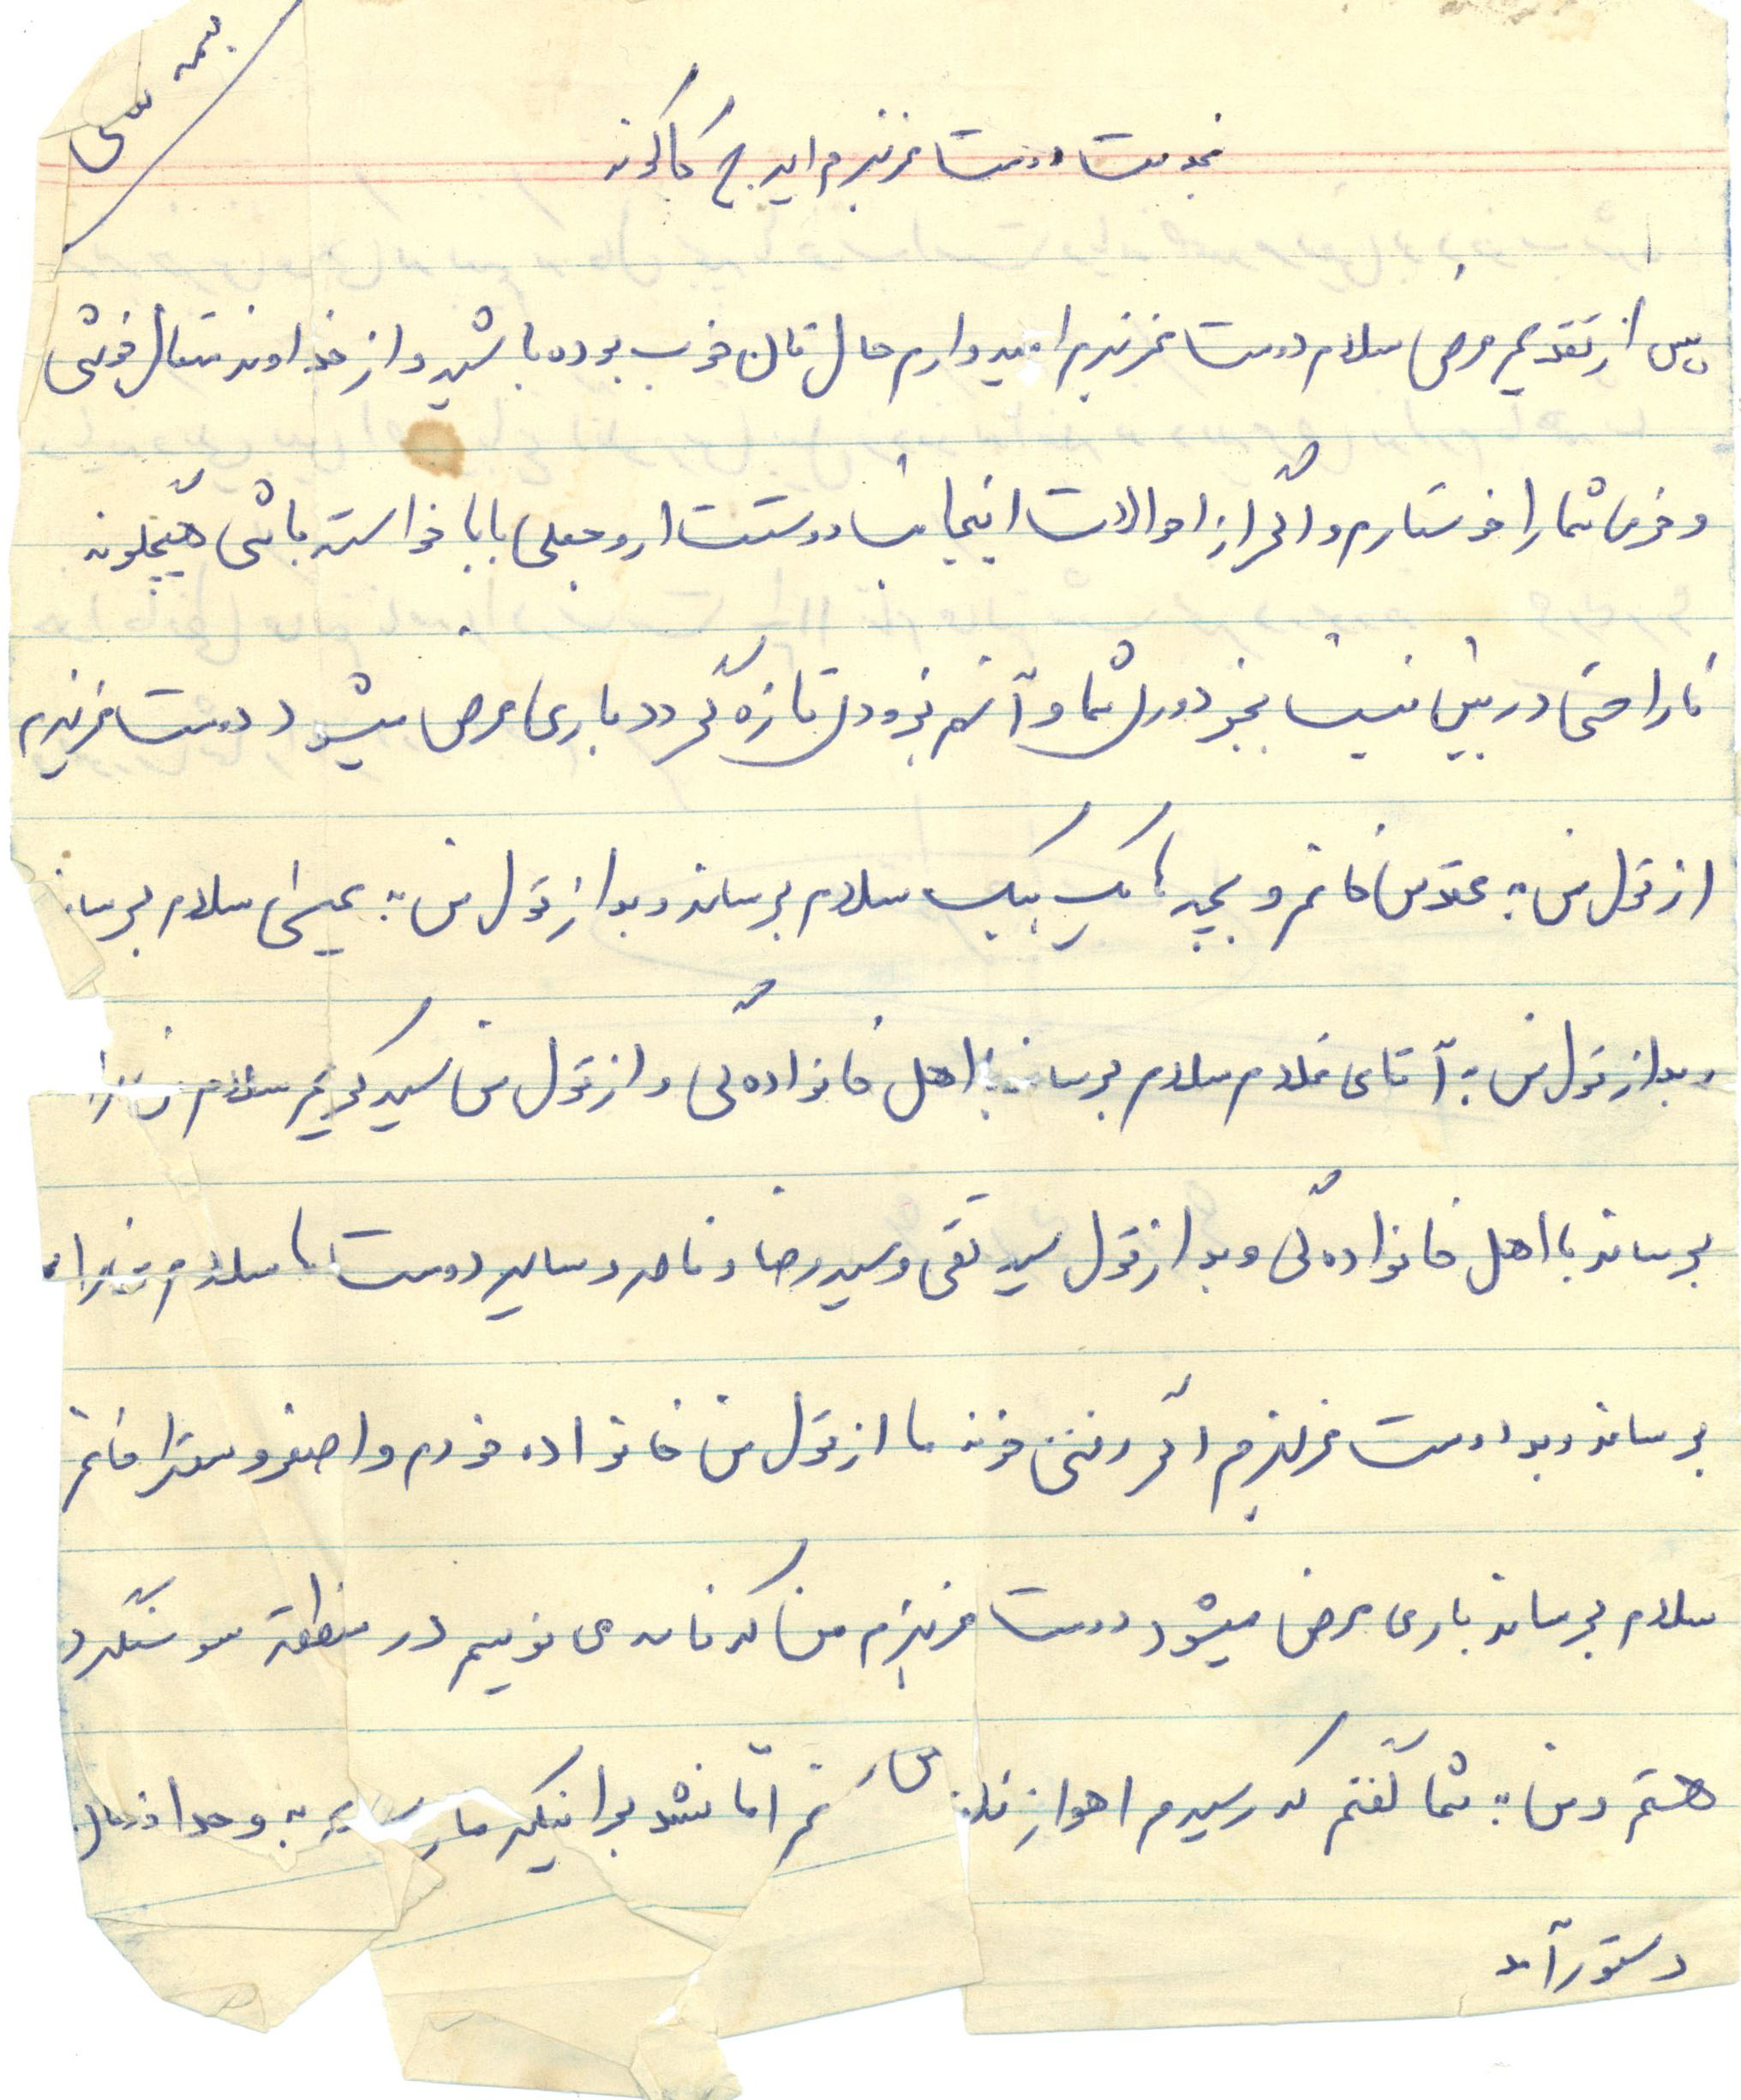 بسمه تعالی
بخدمت دوست عزیزم ایرج کاکاوند
پس از تقدیم عرض سلام دوست عزیزم امیدوارم حال تان خوب بوده باشید و از خداوند متعال خوشی
و خرمی شما را خواستارم و اگر از احوالات اینجانب دوستت اروجعلی بابا خواسته باشی هیچگونه
ناراحتی در بین نیست بجز دوری شما و آنهم بزودی تازه گردد باری عرض میشود دوست عزیزم
از قول من به خانم و بچه ها یک بیک سلام برساند و بعد از قول من به عیسی سلام برساند
و بعد از قول من به آقای غلام سلام برساند با اهل خانواده گی و از قول من سید کریم سلام
برساند با اهل خانواده گی و بعد از قول سید تقی و سید رضا و ناصر و سایر دوست ها سلام
برساند و بعد دوست عزیزم اگر رفتی خونه ما از قول من خانواده خودم و اصغر و خانم
سلام برساند باری عرض میشود دوست عزیزم من که نامه می نویسم در منطقه سوسنگرد
هستم و من به شما گفتم که رسیدم اهواز امّا نشد برا اینکه ما
دستور آمد